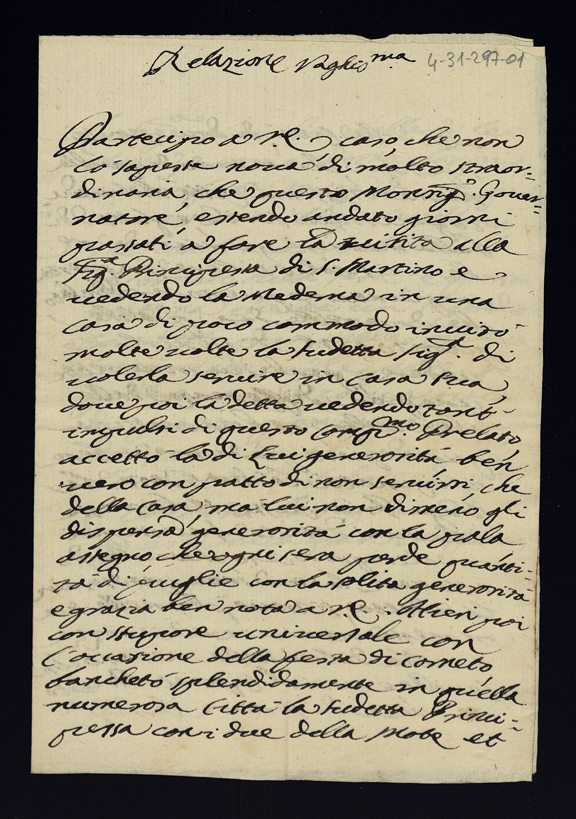 Relazione Vaghis.ma 4-31-297-01
Partecipo a V.E. caso, che non
lo sapesse nova di molto straor-
dinaria, che questo Monsig.r Gover-
natore, essendo andato giorni
passati a fare la visita alla
Sig.a Principessa di S. Martino e
vedendo la Medema in una
casa di poco commodo invitò
molte volte la sudetta Sig.a di
volerla servire in casa sua,
dove poi la detta vedendo tant'
impulsi di questo comp.mo Prelato
accettò la di Lui generosità ben
vero con patto di non servirsi che
della casa, ma lui non dimeno gli
dispensò generosità con la
assegno che ogni sera perde quanti-
tà di puglie con la solita generosità
e grazia ben nota a V.E. Hieri poi
con stupore universale con
l'occasione della festa di Corneto
banchetò splendidamente in quella
numerosa Città la sudetta Princi-
pessa con i due della Mote et